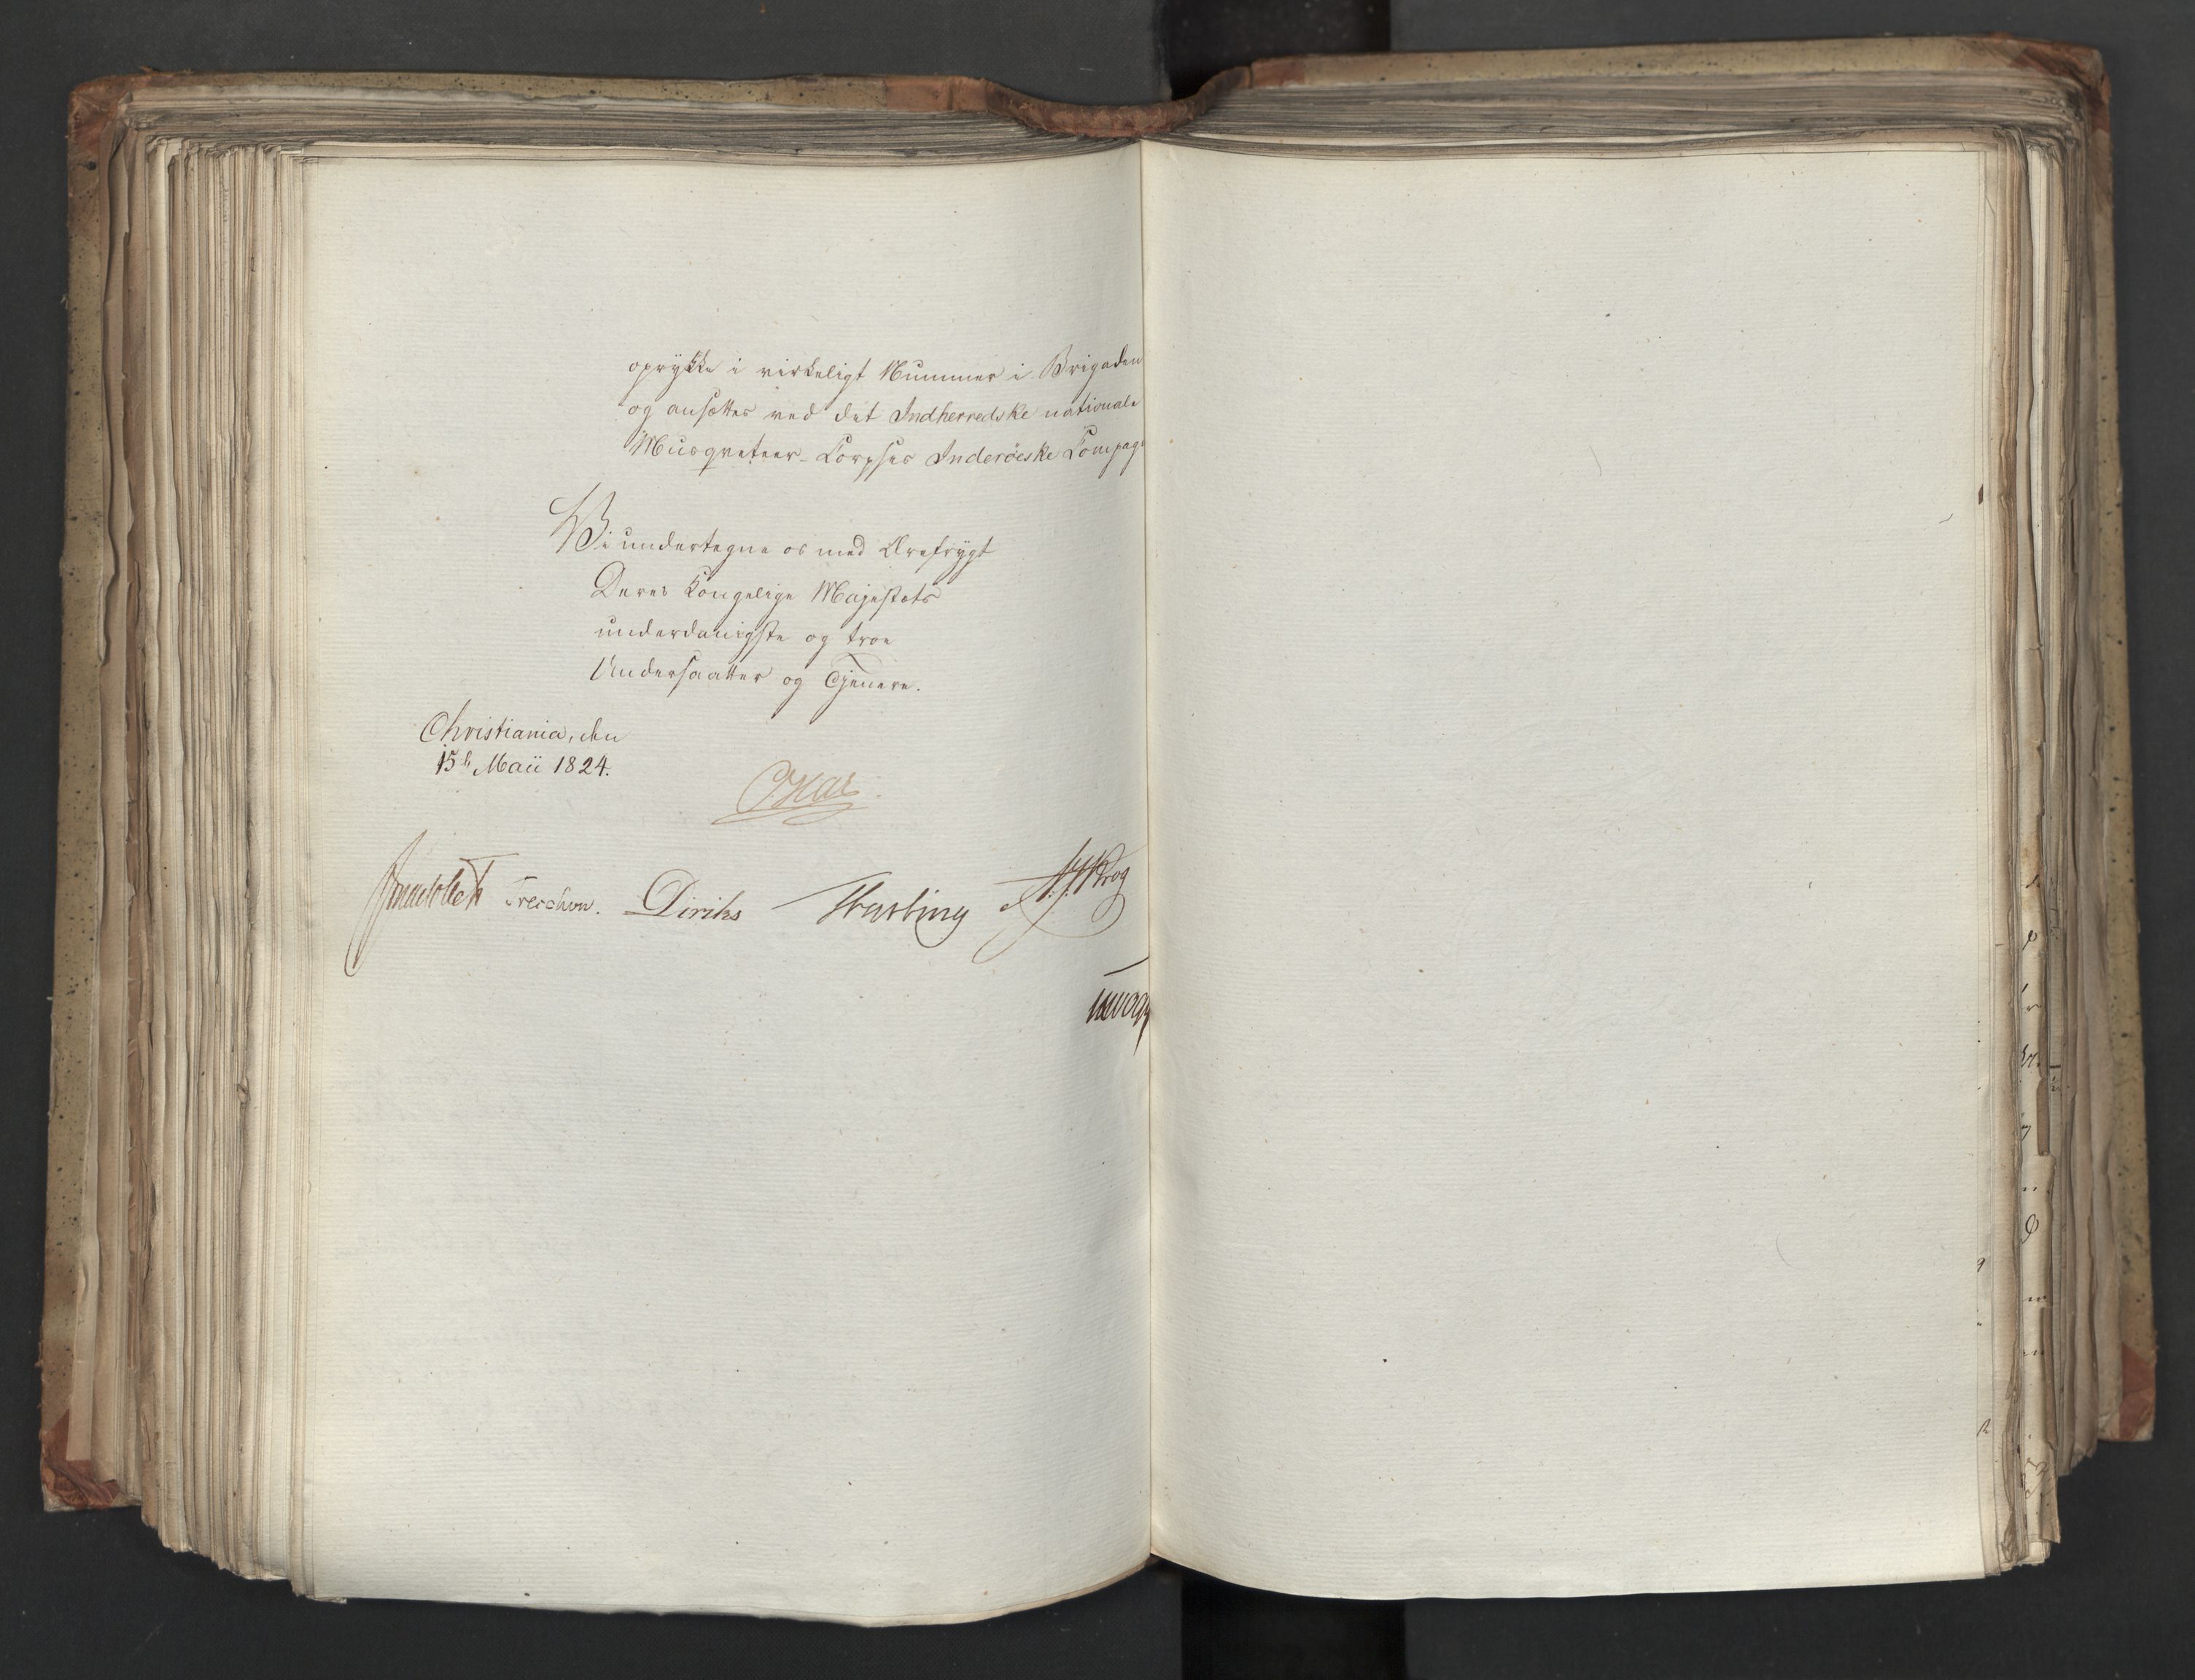 oprykke i virkeligt Nummer i Brigaden
og ansættes ved det Indherredske nationale
Musqveteer-Corpses Inderøeske Compag
Vi undertegne os med Ærefrygt
Deres Kongelige Majestæts
underdanigste og troe
Undersaatter og Tjenere.
Christiania, den
15de Maii 1824.
Oskar
Treschow. Diriks Fasting
Krog